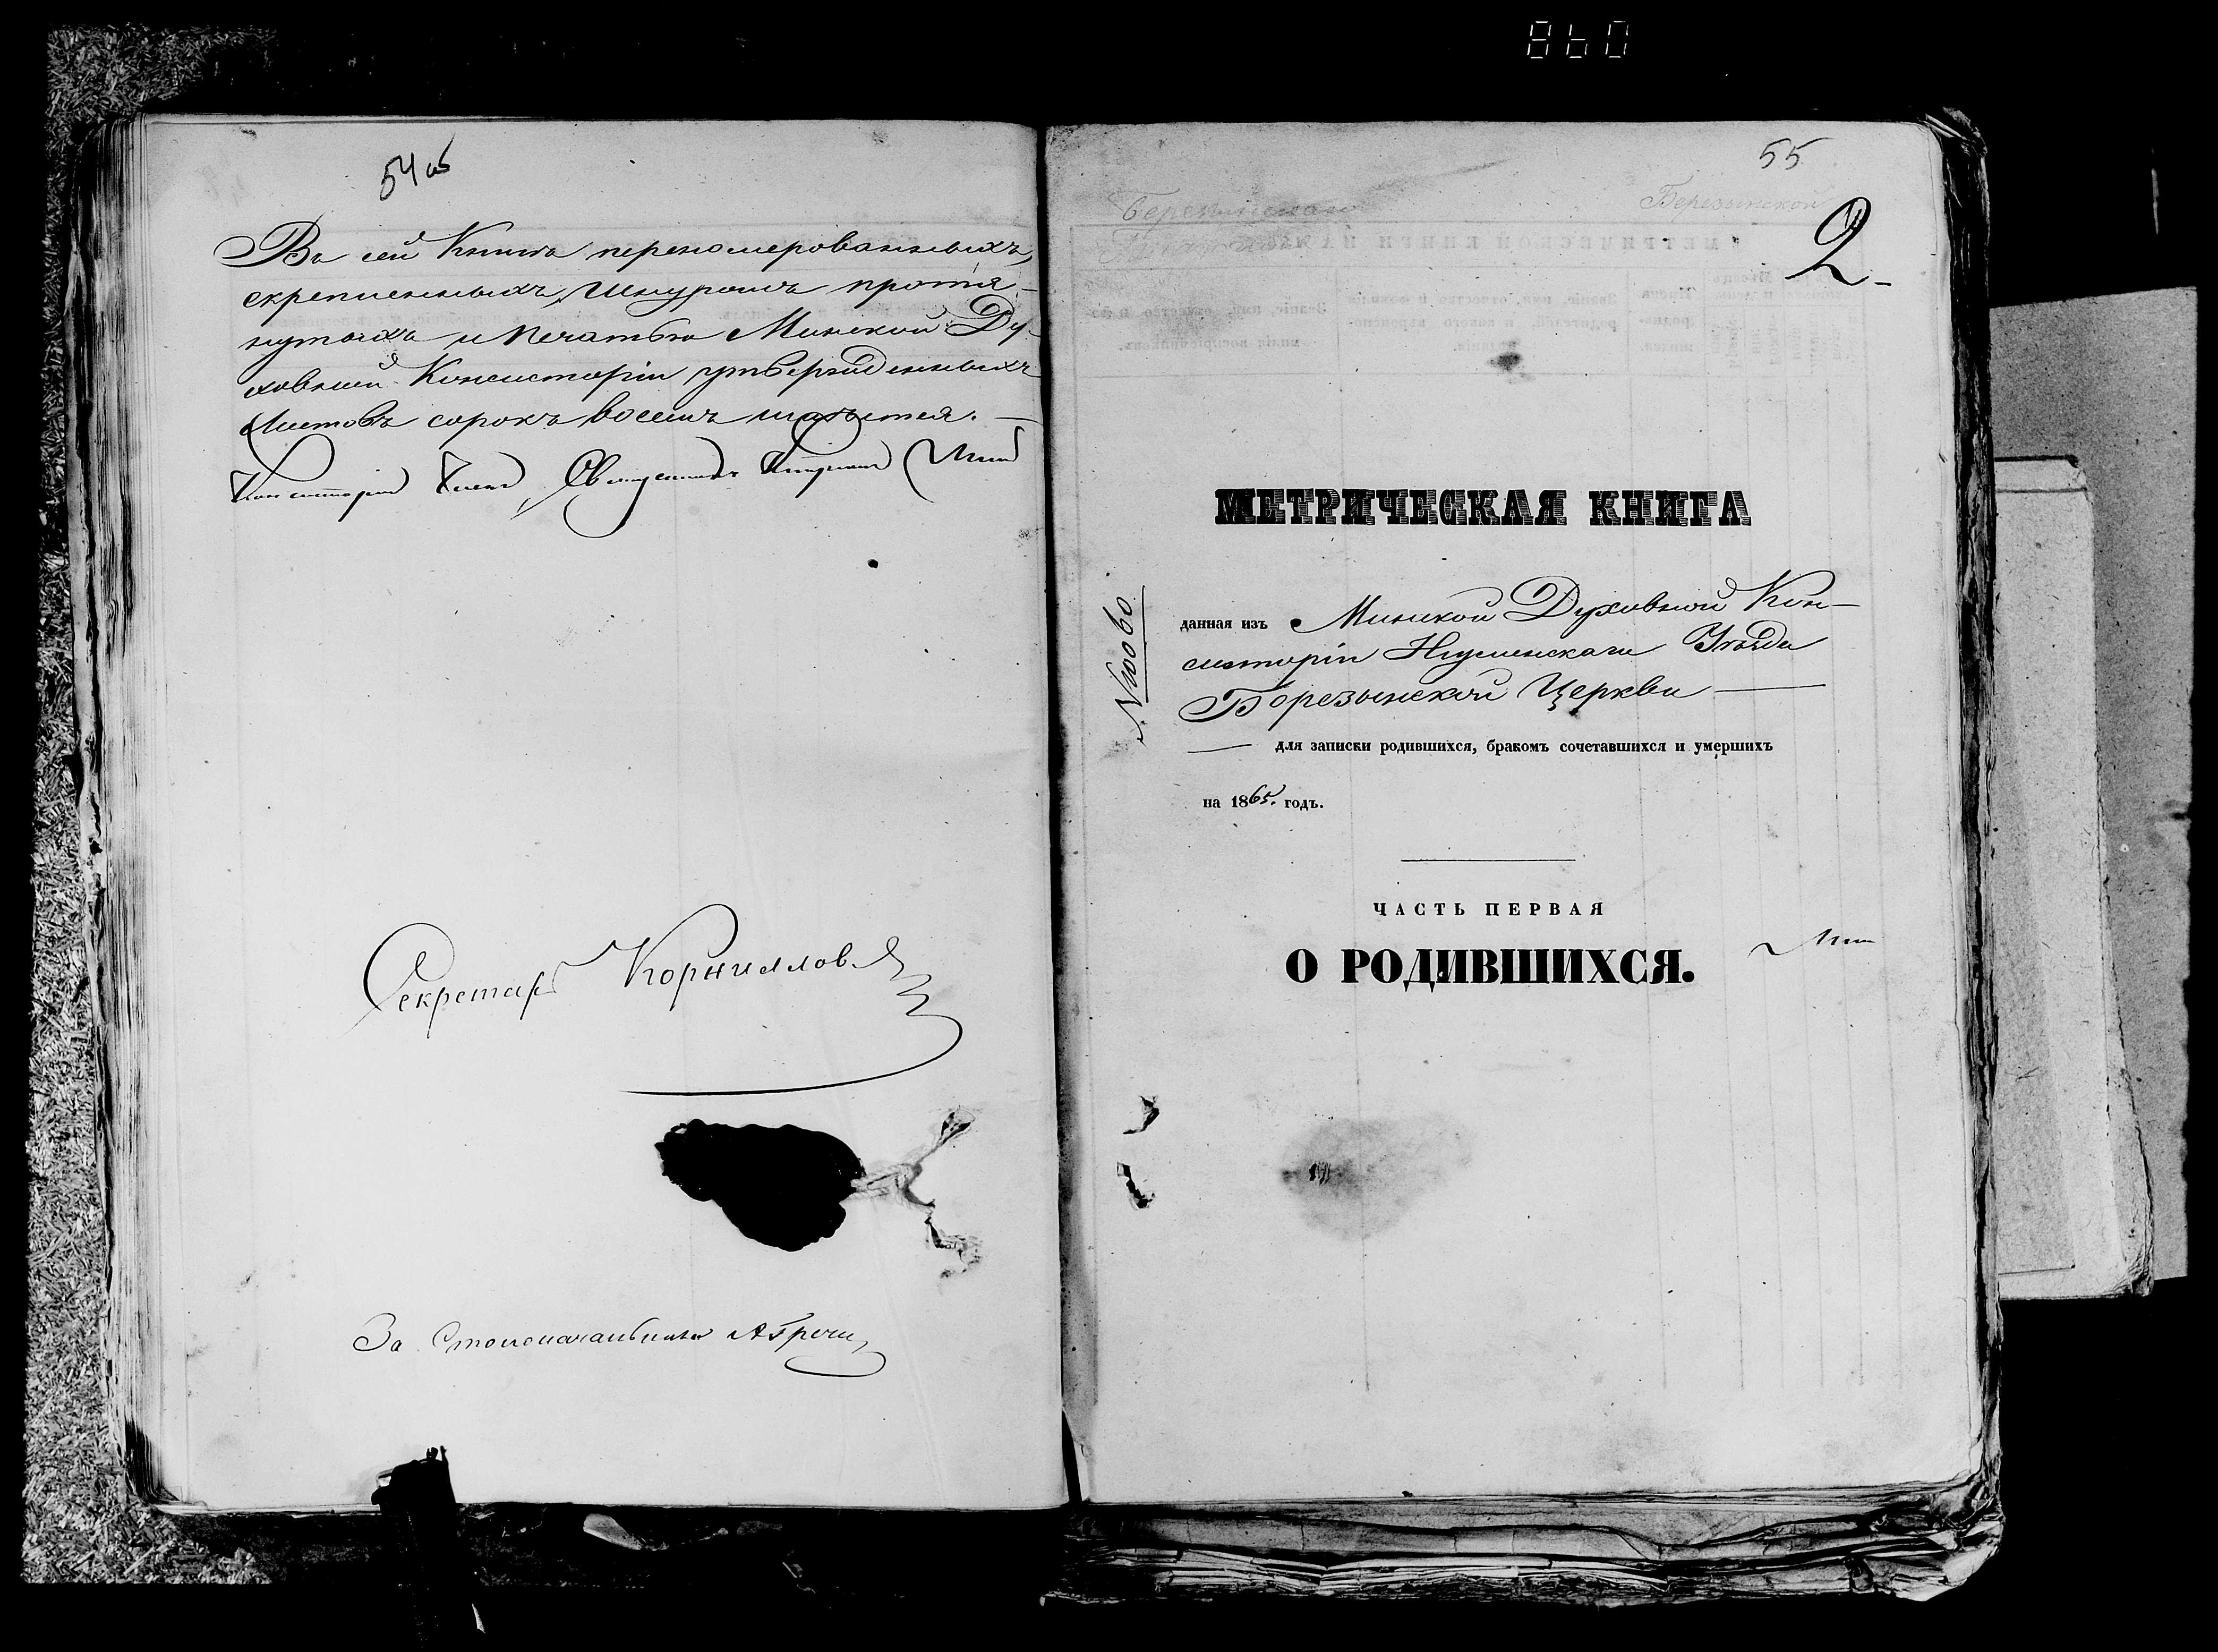 54 об
Въ сей Книгѣ перенумерованныхъ,
скрепленныхъ, Шнуромъ протя-
нутыхъ и печатью Минской Ду-
ховной Консисторіи утвержденныхъ
Листовъ сорокъ восемь имѣется. —
Консисторіи Членъ Священникъ
Секретарь Корниллов
За Столоначальника
55
Березинской
2
МЕТРИЧЕСКАЯ КНИГА
данная изъ Минской Духовной Кон-
систоріи Игуменскаго Уѣзда
Борезынской Церкви —
— для записки родившихся, бракомъ сочетавшихся и умершихъ
на 1865. годъ.
ЧАСТЬ ПЕРВАЯ
О РОДИВШИХСЯ.